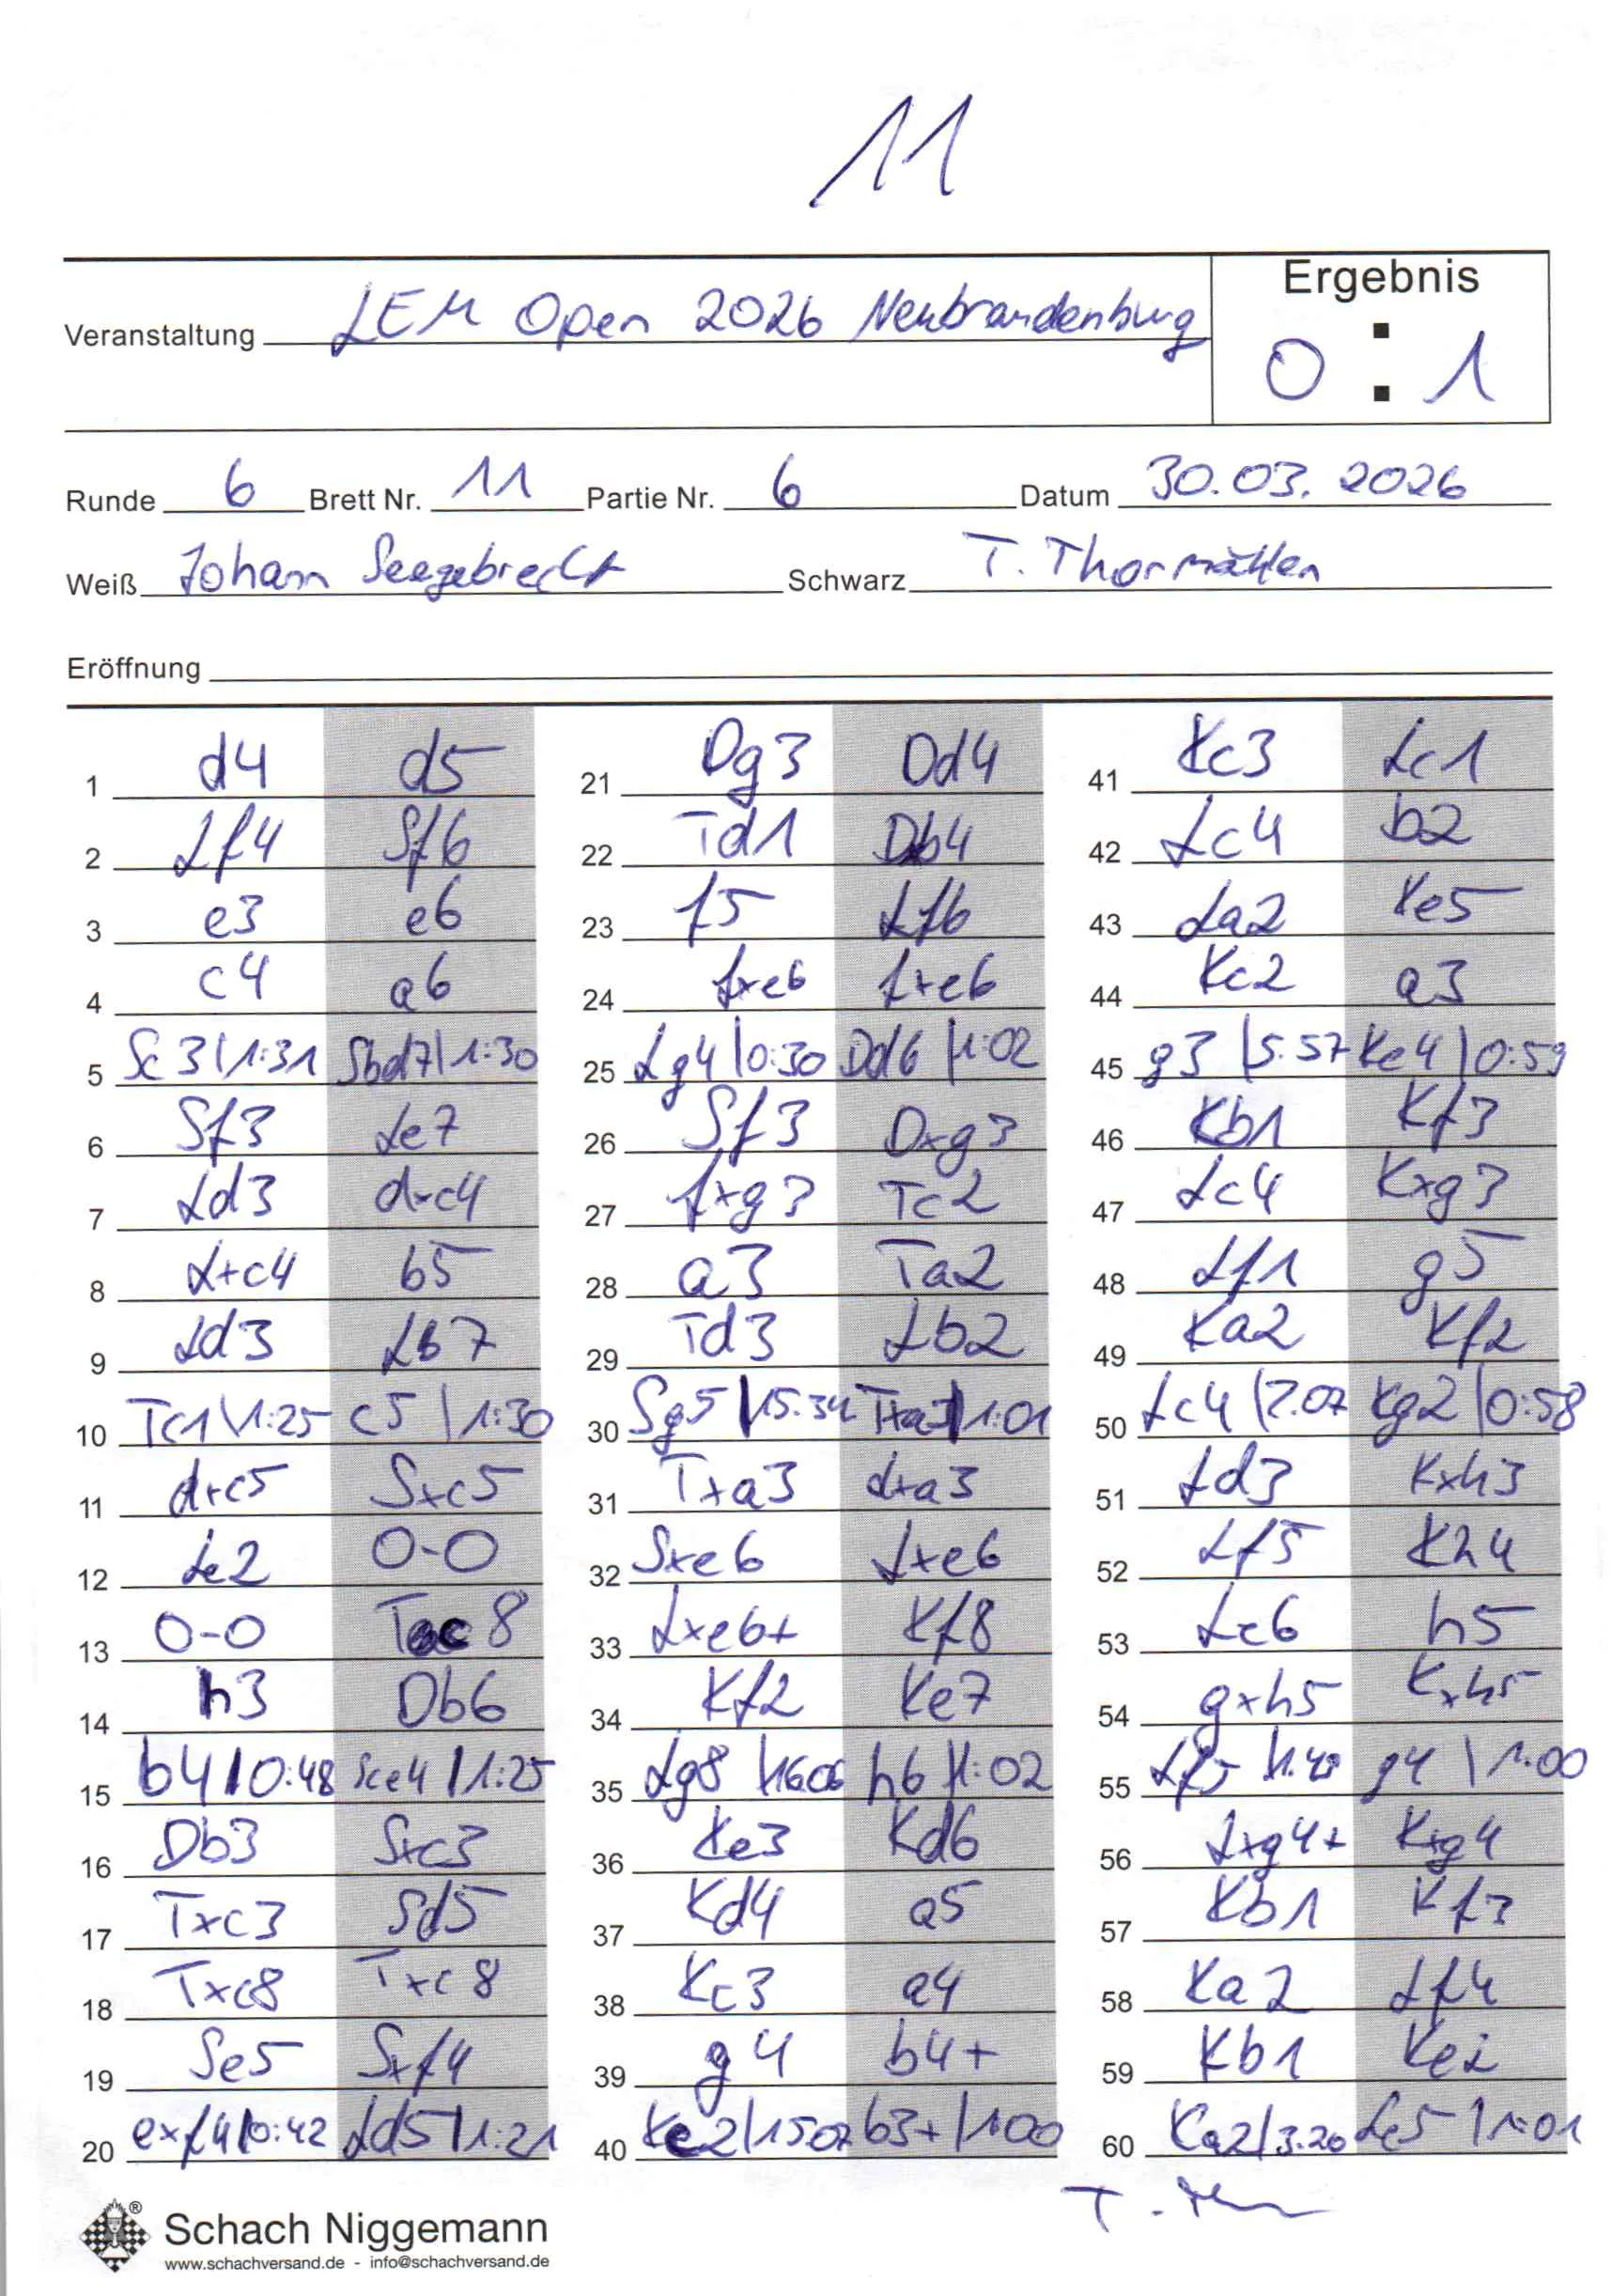 11
Veranstaltung LEM Open 2026 Neubrandenburg
Ergebnis
0 : 1
Runde 6 Brett Nr. 11 Partie Nr. 6 Datum 30.03.2026
Weiß Johann Seegebrecht Schwarz T. Thormählen
Eröffnung
1 d4 d5
2 Lf4 Sf6
3 e3 e6
4 c4 a6
5 Sc3|1:31 Sbd7|1:30
6 Sf3 Le7
7 Ld3 dxc4
8 Lxc4 b5
9 Ld3 Lb7
10 Tc1|1:25 c5|1:30
11 dxc5 Sxc5
12 Le2 0-0
13 0-0 Tac8
14 h3 Db6
15 b4|0:48 Sce4|1:25
16 Db3 Sxc3
17 Txc3 Sd5
18 Txc8 Txc8
19 Se5 Sxf4
20 exf4|0:42 Ld5|1:21
21 Dg3 Dd4
22 Td1 Db4
23 f5 Lf6
24 fxe6 fxe6
25 Lg4|0:30 Dd6|1:02
26 Sf3 Dxg3
27 fxg3 Tc2
28 a3 Ta2
29 Td3 Lb2
30 Sg5|15.34 Txa3|1:01
31 Txa3 Lxa3
32 Sxe6 Lxe6
33 Lxe6+ Kf8
34 Kf2 Ke7
35 Lg8|16.06 h6|1:02
36 Ke3 Kd6
37 Kd4 a5
38 Kc3 a4
39 g4 b4+
40 Kc2|15.07 b3+|1:00
41 Kc3 Lc1
42 Lc4 b2
43 La2 Ke5
44 Kc2 a3
45 g3|5.57 Ke4|0:59
46 Kb1 Kf3
47 Lc4 Kxg3
48 Lf1 g5
49 Ka2 Kf2
50 Lc4|7.07 Kg2|0:58
51 Ld3 Kxh3
52 Lf5 Kh4
53 Le6 h5
54 gxh5 Kxh5
55 Lf5 g4|1:00
56 Lxg4+ Kxg4
57 Kb1 Kf3
58 Ka2 Lf4
59 Kb1 Ke2
60 Ka2|3.20 Le5|1:01
Schach Niggemann
www.schachversand.de - info@schachversand.de